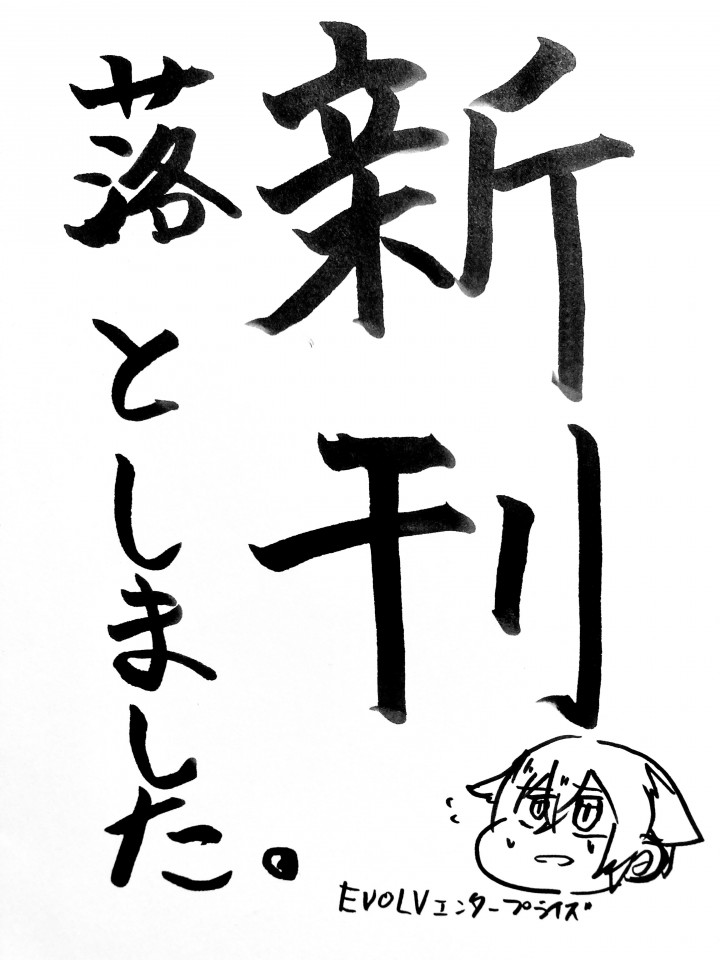 新刊
落としました。
EVOLVエンタープライズ